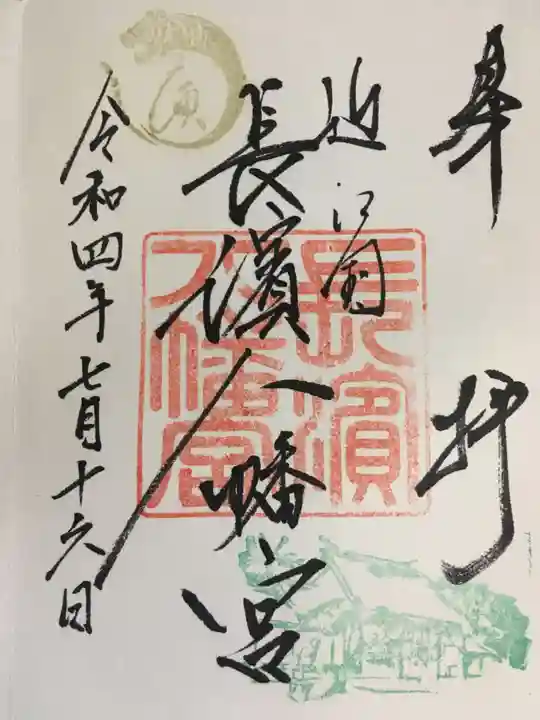 奉拝
近江国
長濱八幡宮
令和四年七月十六日
長濱
八幡宮